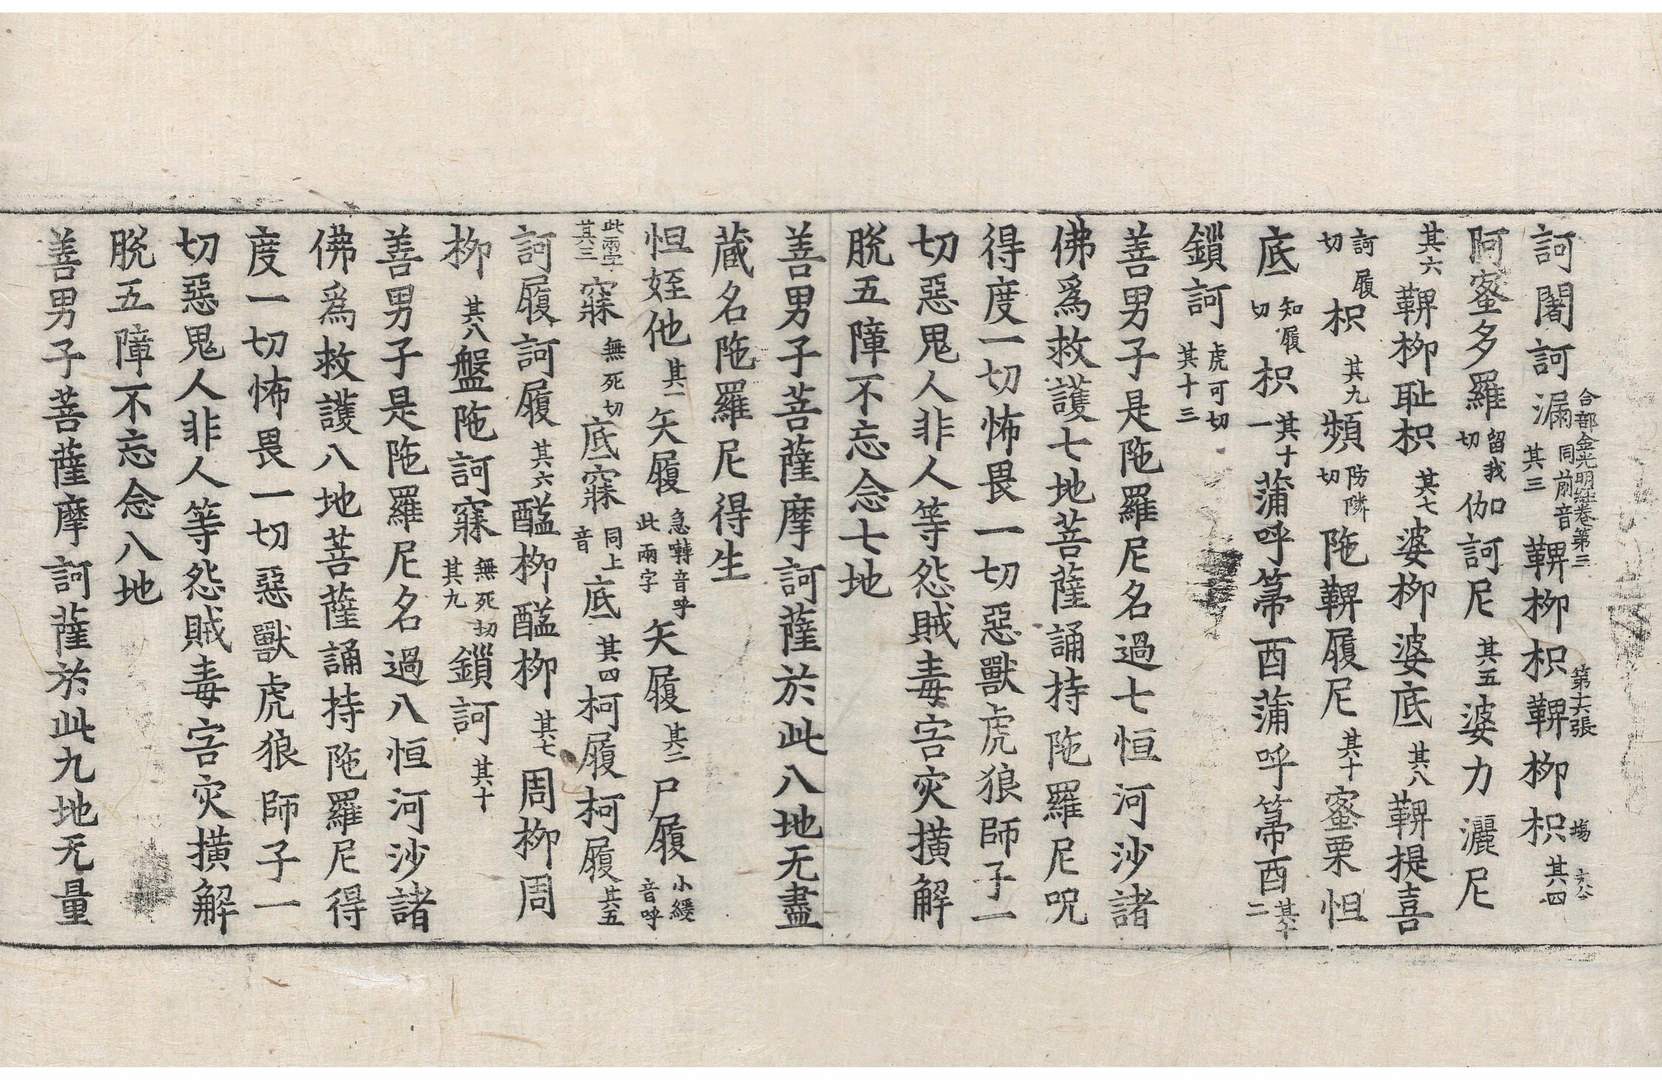 合部金光明經卷第三 第十六張 塲
訶闍訶漏同前音其三鞞柳枳鞞柳枳其四
阿蜜多羅留我切伽訶尼其五婆力灑尼
其六鞞柳耻枳其七婆柳婆底其八鞞提喜
訶履切枳其九頻防隣切陁鞞履尼其十蜜栗怛
底知履切枳其十一蒲呼箒酉蒲呼箒酉其十二
鎖訶虎可切其十三
善男子是陁羅尼名過七恒河沙諸
佛爲救護七地菩薩誦持陁羅尼呪
得度一切怖畏一切惡獸虎狼師子一
切惡鬼人非人等怨賊毒害灾橫解
脫五障不忘念七地
善男子菩薩摩訶薩於此八地无盡
藏名陁羅尼得生
怛姪他其一矢履急轉音呼此兩字矢履其二尸履小緩音呼
此兩字其三寐無死切底寐同上音底其四柯履柯履其五
訶履訶履其六醯柳醯柳其七周柳周
柳其八盤陁訶寐無死切其九鎖訶其十
善男子是陁羅尼名過八恒河沙諸
佛爲救護八地菩薩誦持陁羅尼得
度一切怖畏一切惡獸虎狼師子一
切惡鬼人非人等怨賊毒害灾橫解
脫五障不忘念八地
善男子菩薩摩訶薩於此九地无量